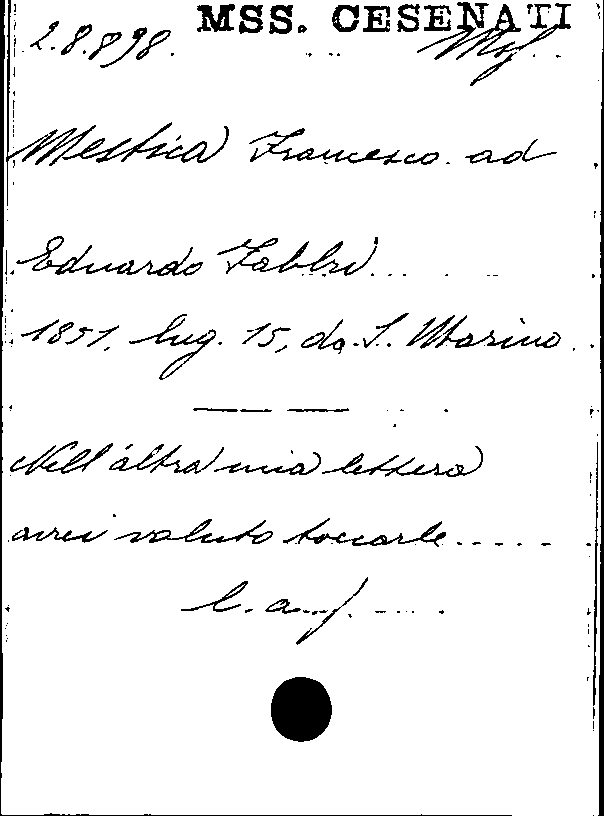 MSS. CESENATI
2.8.898. Msf.
Mestica Francesco ad
Eduardo Fabbri
1851, lug. 15, da S. Marino
Nell'altra mia lettera
avrei voluto toccarle.....
l. a. f.